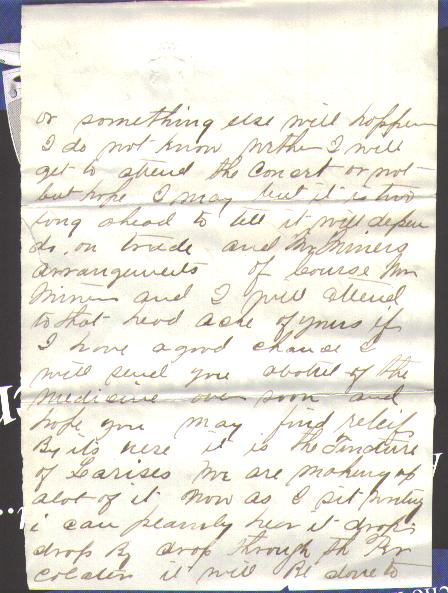 or something else will happen
I do not know wither I will
get to attend the Consert or not
but hope I may but it is two
long ahead to tell it will depen
ds, on trade and Mr Miners
arrangements of Course Mr
Miner and I will attend
to that head ache of yours if
I have a good chance I
will send you abotel of the
Medicine over soon and
hope you may find releif
By its use it is the Tincture
of We are making up
alot of it Now as I sit writing
i can plainly her it drop
drop By drop through th Per
colater it will Be done to